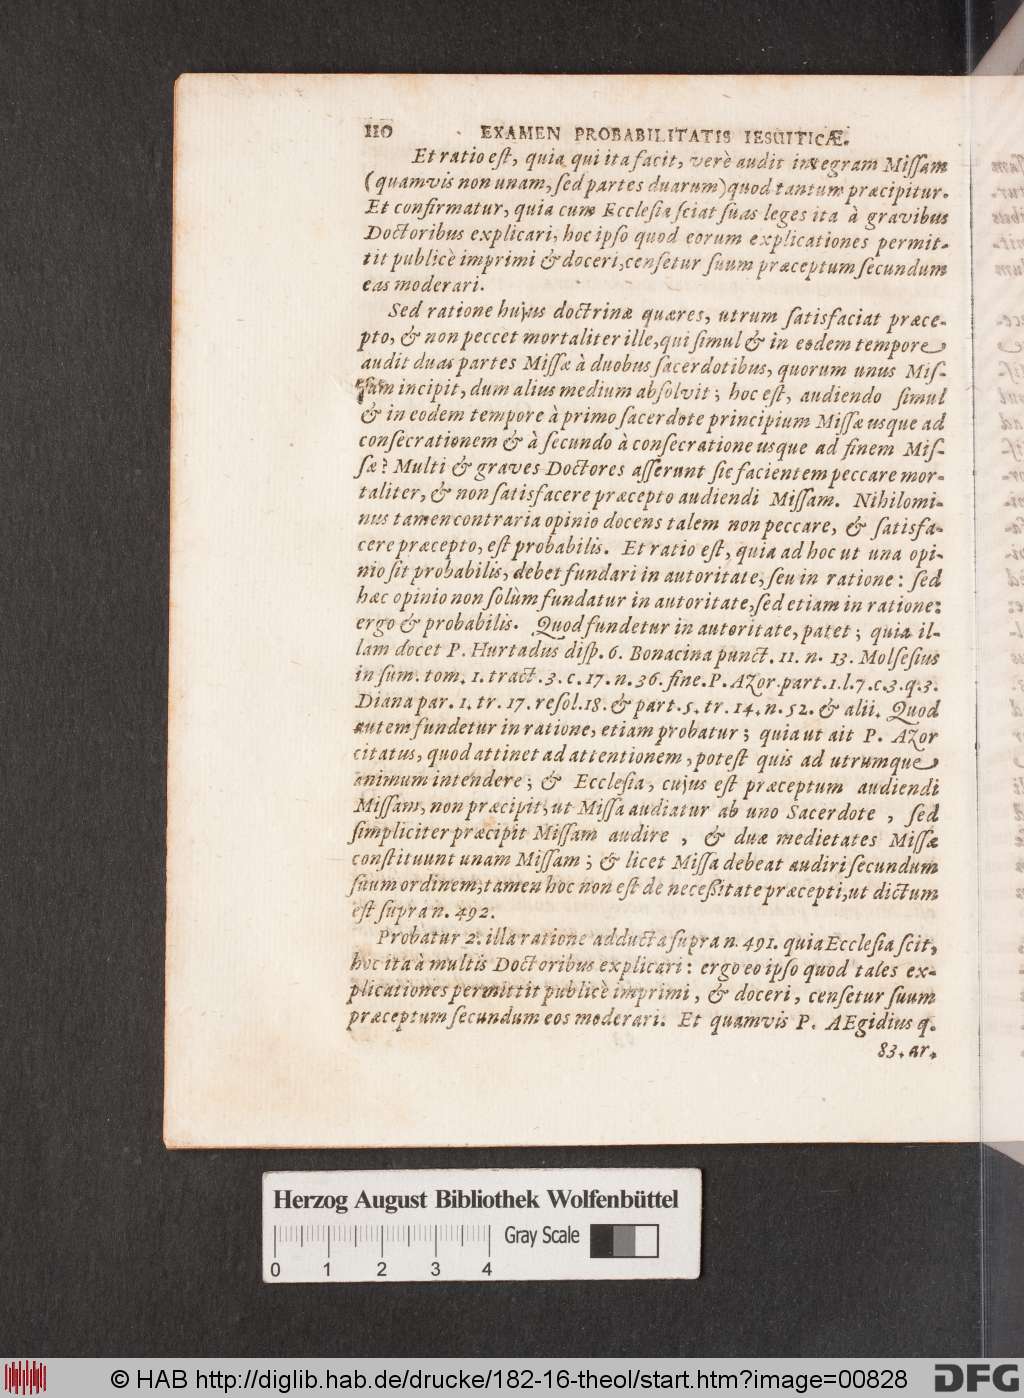 110 EXAMEN PROBABILITATIS IESUITICÆ.
Et ratio eſt, quia qui ita facit, verè audit integram Miſſam
(quamvis non unam, ſed partes duarum) quod tantum præcipitur.
Et confirmatur, quia cum Eccleſia ſciat ſuas leges ita à gravibus
Doctoribus explicari, hoc ipſo quod eorum explicationes permit-
tit publicè imprimi & doceri, cenſetur ſuum præceptum ſecundum
eas moderari.
Sed ratione hujus doctrinæ quæres, utrum ſatisfaciat præce-
pto, & non peccet mortaliter ille, qui ſimul & in eodem tempore
audit duas partes Miſſæ à duobus ſacerdotibus, quorum unus Miſ-
ſam incipit, dum alius medium abſolvit; hoc eſt, audiendo ſimul
& in eodem tempore à primo ſacerdote principium Miſſæ usque ad
conſecrationem & à ſecundo à conſecratione usque ad finem Miſ-
ſæ? Multi & graves Doctores aſſerunt ſic facientem peccare mor-
taliter, & non ſatisfacere præcepto audiendi Miſſam. Nihilomi-
nus tamen contraria opinio docens talem non peccare, & ſatisfa-
cere præcepto, eſt probabilis. Et ratio eſt, quia ad hoc ut una opi-
nio ſit probabilis, debet fundari in autoritate, ſeu in ratione: ſed
hæc opinio non ſolùm fundatur in autoritate, ſed etiam in ratione:
ergo & probabilis. Quod fundetur in autoritate, patet; quia il-
lam docet P. Hurtadus diſp. 6. Bonacina punct. 11. n. 13. Molfeſius
in ſum. tom. 1. tract. 3. c. 17. n. 36. fine. P. Azor part. 1. l. 7. c. 3. q. 3.
Diana par. 1. tr. 17. reſol. 18. & part. 5. tr. 14. n. 52. & alii. Quod
autem fundetur in ratione, etiam probatur; quia ut ait P. Azor
citatus, quod attinet ad attentionem, poteſt quis ad utrumque
animum intendere; & Eccleſia, cujus eſt præceptum audiendi
Miſſam, non præcipit, ut Miſſa audiatur ab uno Sacerdote, ſed
ſimpliciter præcipit Miſſam audire, & duæ medietates Miſſæ
conſtituunt unam Miſſam; & licet Miſſa debeat audiri ſecundum
ſuum ordinem, tamen hoc non eſt de neceßitate præcepti, ut dictum
eſt ſupra n. 492.
Probatur 2. illa ratione adducta ſupra n. 491. quia Eccleſia ſcit,
hoc ita à multis Doctoribus explicari: ergo eo ipſo quod tales ex-
plicationes permittit publicè imprimi, & doceri, cenſetur ſuum
præceptum ſecundum eos moderari. Et quamvis P. AEgidius q.
83. ar.
Herzog August Bibliothek Wolfenbüttel
Gray Scale
0 1 2 3 4
© HAB http://diglib.hab.de/drucke/182-16-theol/start.htm?image=00828
DFG